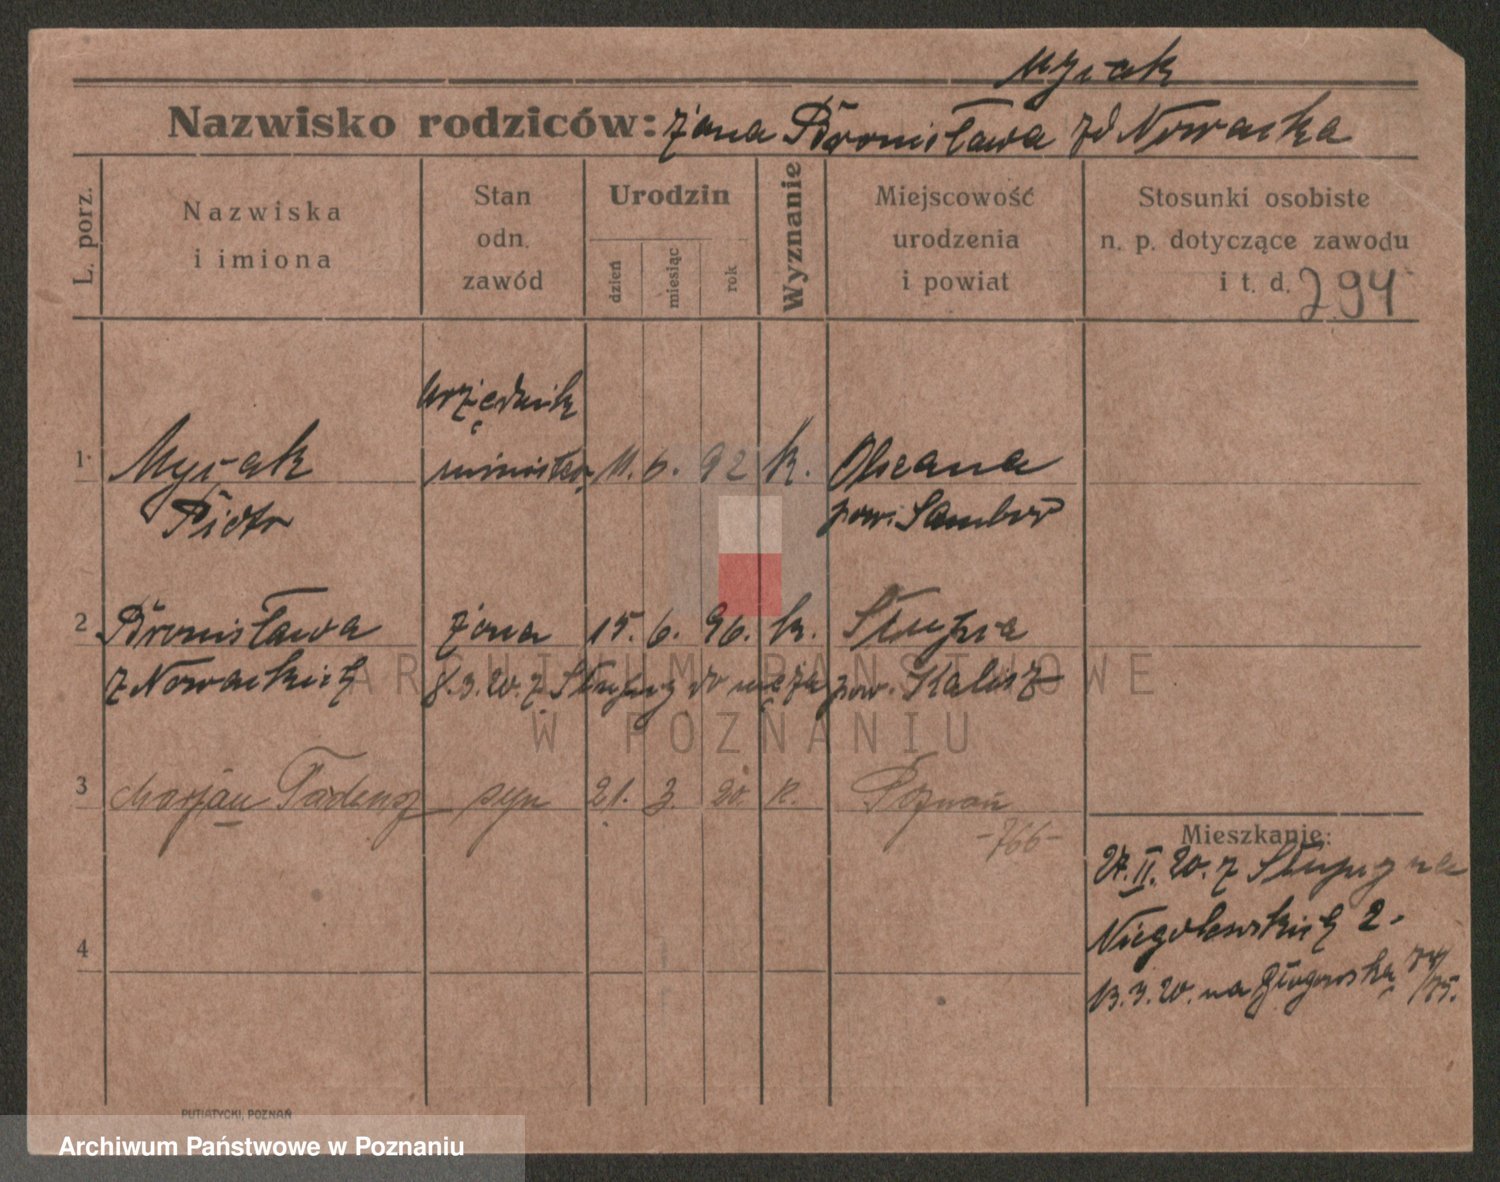 Mysiak
Nazwisko rodziców: żona Bronisława zd Nowacka
L. porz.
Nazwiska
i imiona
Stan
odn.
zawód
Urodzin
dzień
miesiąc
rok
Wyznanie
Miejscowość
urodzenia
i powiat
Stosunki osobiste
n. p. dotyczące zawodu
i t. d. 294
urzędnik
1 Mysiak 11. 6. 92 k.
Piotr pow. Sambor
2 Bronisława żona 15. 6. 96. k. Słupia
z Nowackich 8.3.20. z Słupi do męża pow. Kalisz
3 Marjan Tadeusz syn 21. 3. 20. k. Poznań
-766-
4
Mieszkanie:
27.II.20. z Słupi na
Niegolewskich 2.
13.3.20. na Głogowską 74/75.
PUTIATYCKI, POZNAŃ
ARCHIWUM PAŃSTWOWE
W POZNANIU
Archiwum Państwowe w Poznaniu